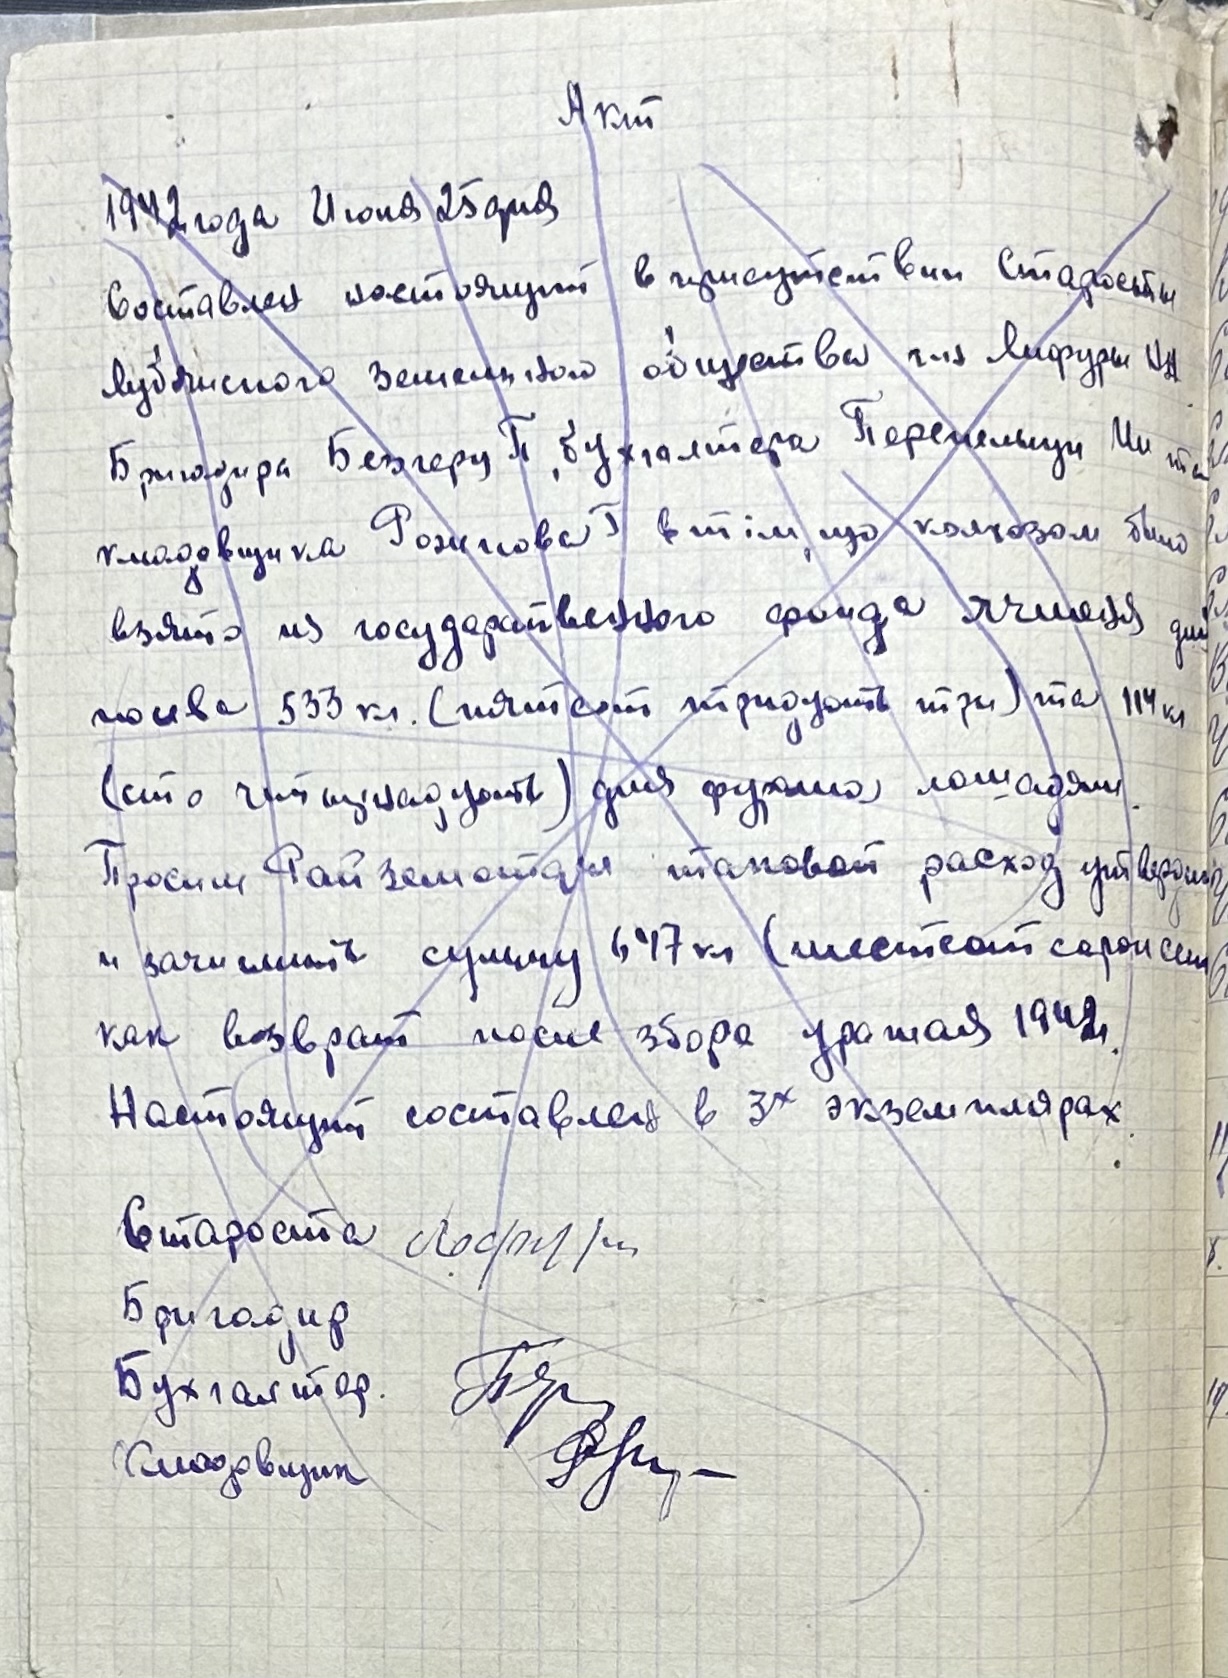 Акт
1942 года Июня 25 дня
Составлен настоящий в присутствии Старосты
земельного общества
Бригадира П, бухгалтера та
кладовщика в тім, що колхозом було
взято из государственного фонда ячменя для
посева 533 кг. (пятсот тридцать три) та 114 кг
(сто читырнадцать) для фуража лошадям.
Просим Райземотдел таковой расход
и зачислить сумму 647 кг (шестсот сорок сем
как возврат после збора уражая 1942 г.
Настоящий составлен в 3х экземплярах.
Староста
Бригадир
Бухгалтер.
Кладовщик